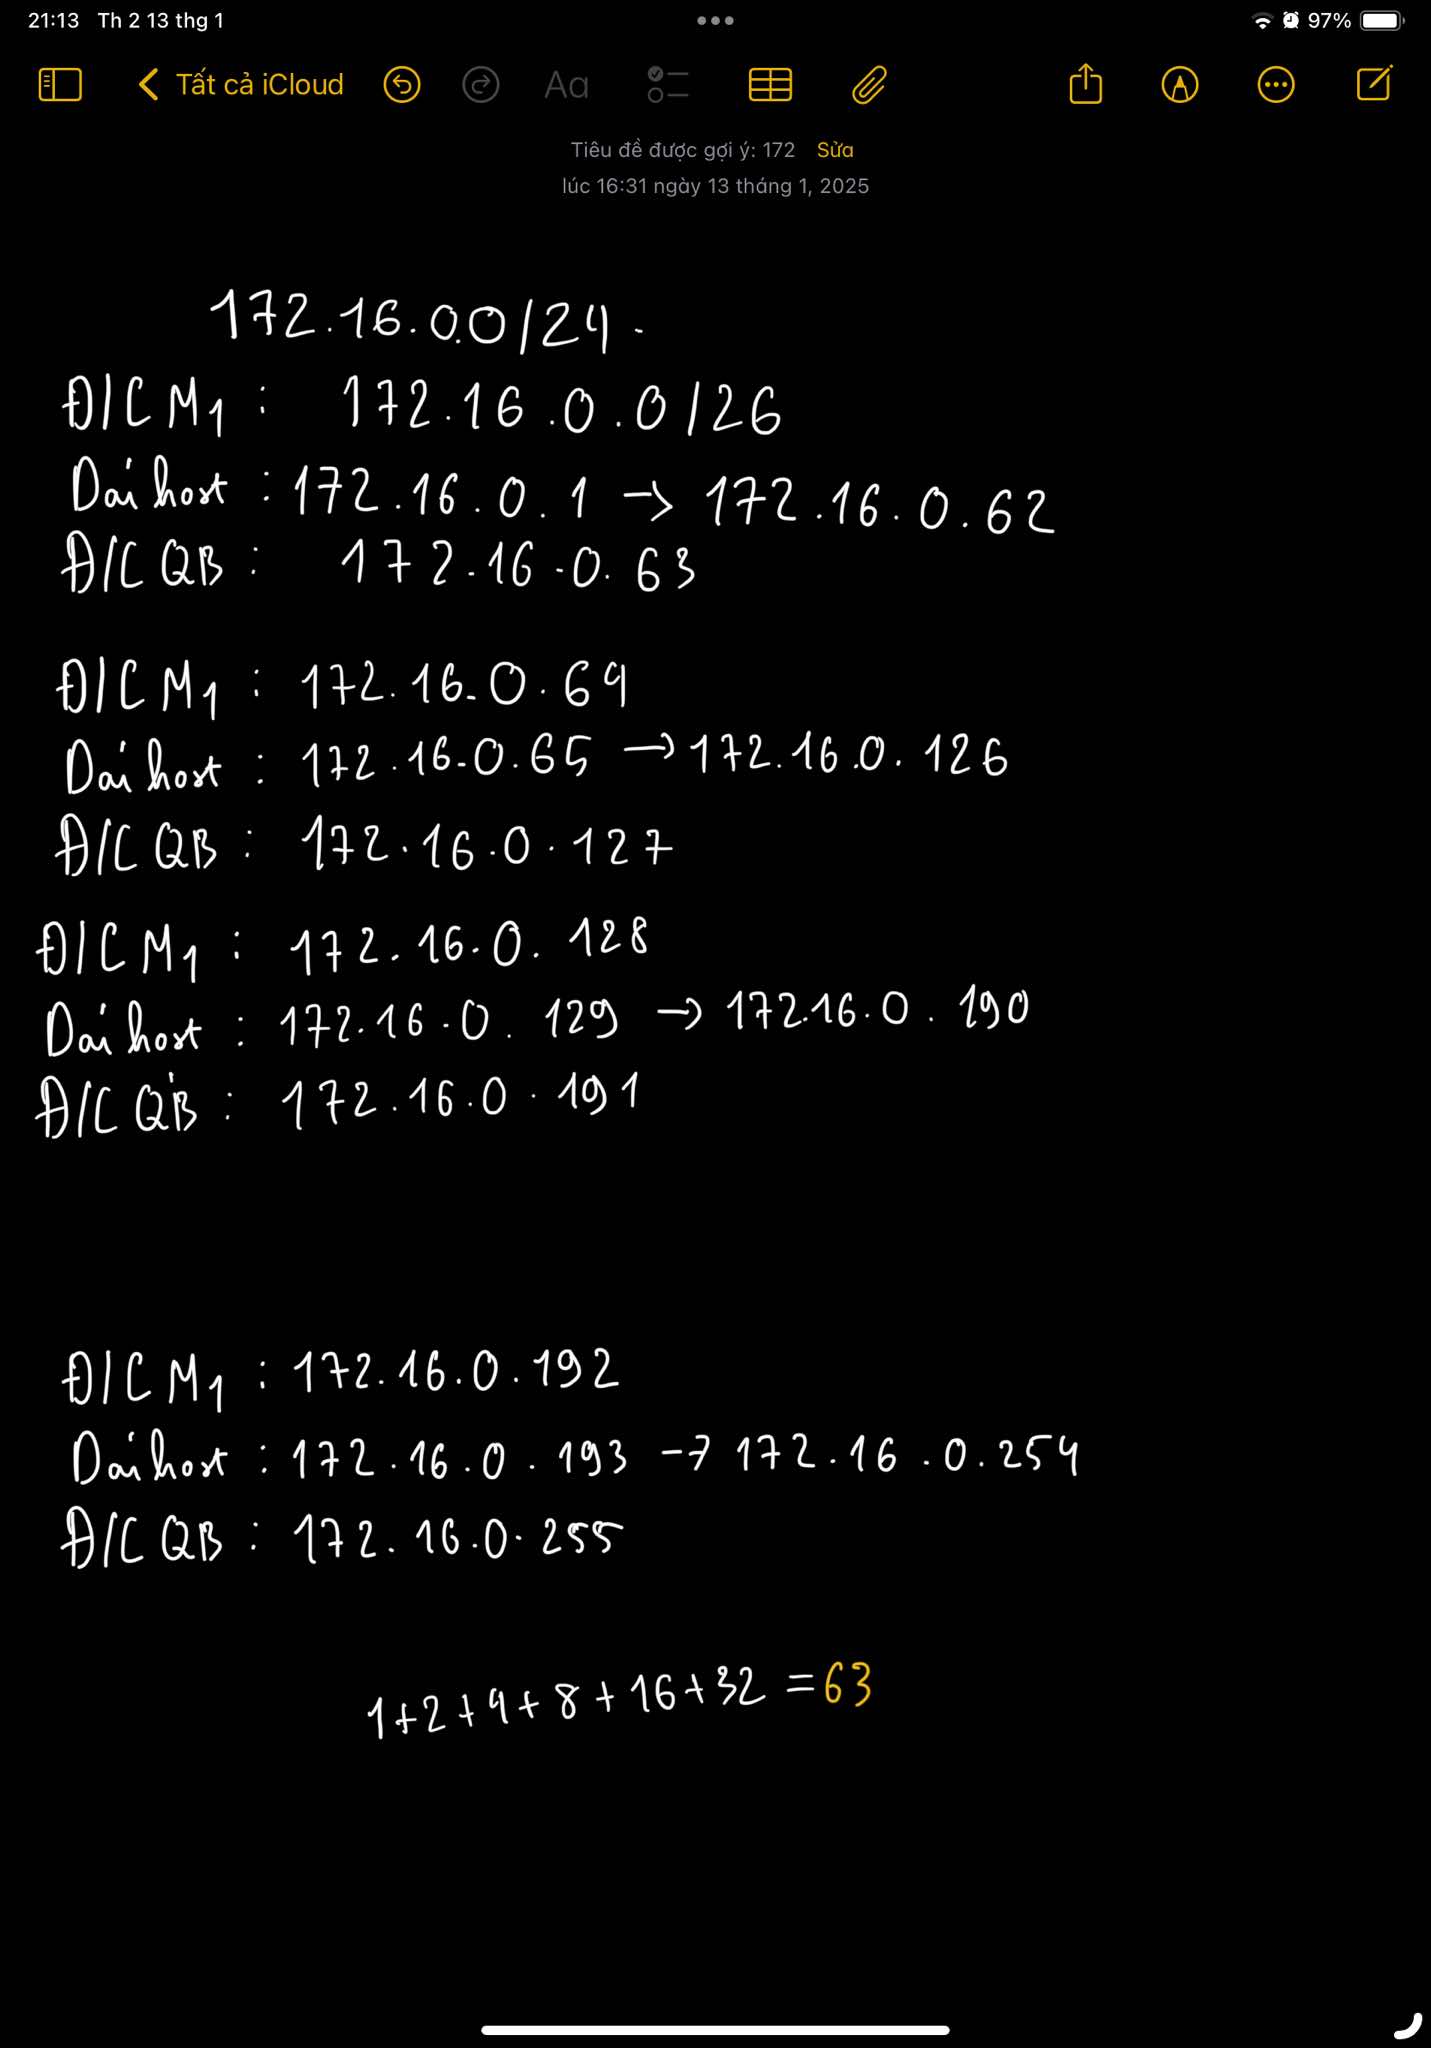 21:13 Th 2 13 thg 1
97%
Tất cả iCloud
Aa
Tiêu đề được gợi ý: 172 Sửa
lúc 16:31 ngày 13 tháng 1, 2025
172.16.0.0/24.
Đ/C M1 : 172.16.0.0/26
Dải host : 172.16.0.1 → 172.16.0.62
Đ/C QB : 172.16.0.63
Đ/C M1 : 172.16.0.64
Dải host : 172.16.0.65 → 172.16.0.126
Đ/C QB : 172.16.0.127
Đ/C M1 : 172.16.0.128
Dải host : 172.16.0.129 → 172.16.0.190
Đ/C QB : 172.16.0.191
Đ/C M1 : 172.16.0.192
Dải host : 172.16.0.193 → 172.16.0.254
Đ/C QB : 172.16.0.255
1+2+4+8+16+32 = 63